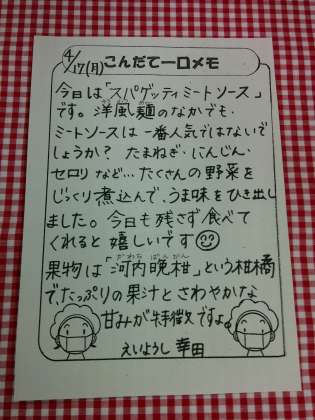 4/17(月) こんだて一口メモ
今日は「スパゲッティミートソース」
です。洋風麺のなかでも、
ミートソースは一番人気ではないで
しょうか？ たまねぎ・にんじん・
セロリなど…たくさんの野菜を
じっくり煮込んで、うま味をひき出し
ました。今日も残さず食べて
くれると嬉しいです
かわちばんかん
果物は「河内晩柑」という柑橘
で、たっぷりの果汁とさわやかな
甘みが特徴ですよ。
えいようし 幸田